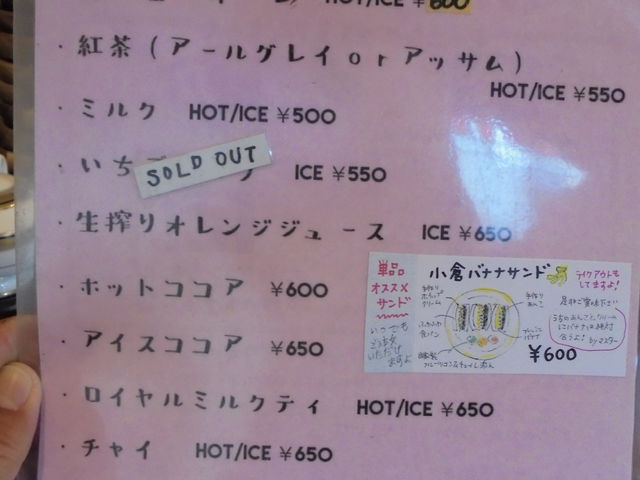 HOT/ICE ¥600
・紅茶（アールグレイorアッサム）
HOT/ICE ¥550
・ミルク HOT/ICE ¥500
・いち SOLD OUT ICE ¥550
・生搾りオレンジジュース ICE ¥650
・ホットココア ¥600
・アイスココア ¥650
・ロイヤルミルクティ HOT/ICE ¥650
・チャイ HOT/ICE ¥650
単品
オススメ
サンド
いつでも
ご注文
いただけ
ますよ
小倉バナナサンド
テイクアウトも
してますよ!
手作り
ホイップ
クリーム
ふわふわ
食パン
手作り
あんこ
フレッシュ
バナナ
是非ご賞味下さい
うちのあんことクリーム
にバナナは絶対
合うよ! byマスター
¥600